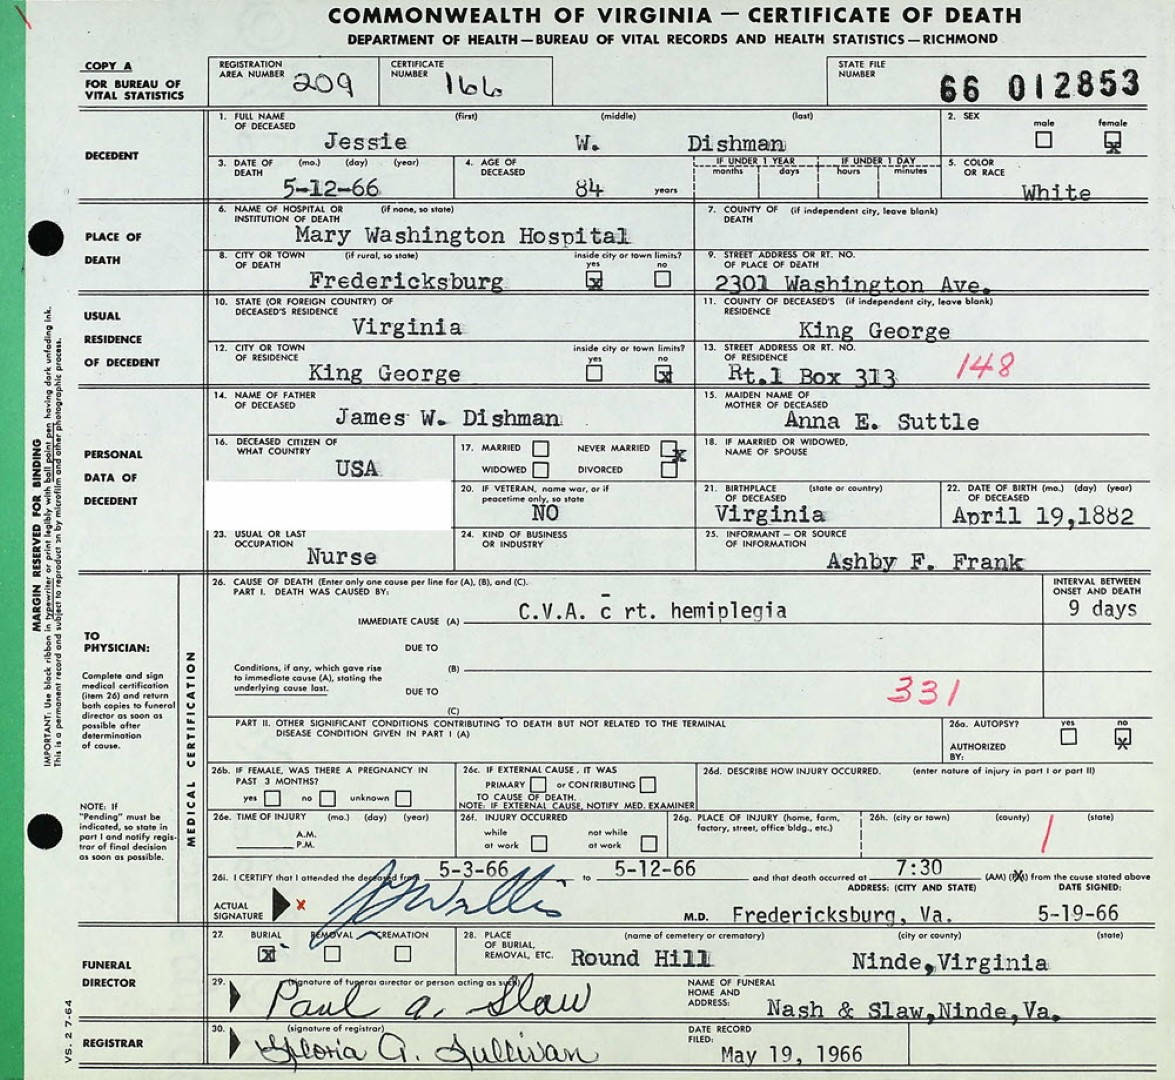 COMMONWEALTH OF VIRGINIA — CERTIFICATE OF DEATH
DEPARTMENT OF HEALTH—BUREAU OF VITAL RECORDS AND HEALTH STATISTICS—RICHMOND
COPY A
FOR BUREAU OF
VITAL STATISTICS
REGISTRATION
AREA NUMBER 209
CERTIFICATE
NUMBER 166
STATE FILE
NUMBER 66 012853
DECEDENT
1. FULL NAME (first) (middle) (last)
OF DECEASED
Jessie W. Dishman
2. SEX male female
x
3. DATE OF (mo.) (day) (year)
DEATH
5-12-66
4. AGE OF
DECEASED
84 years
IF UNDER 1 YEAR IF UNDER 1 DAY
months days hours minutes
5. COLOR
OR RACE
White
PLACE OF
DEATH
6. NAME OF HOSPITAL OR (if none, so state)
INSTITUTION OF DEATH
Mary Washington Hospital
7. COUNTY OF (if independent city, leave blank)
DEATH
8. CITY OR TOWN (if rural, so state) inside city or town limits?
OF DEATH yes no
Fredericksburg x
9. STREET ADDRESS OR RT. NO.
OF PLACE OF DEATH
2301 Washington Ave.
USUAL
RESIDENCE
OF DECEDENT
10. STATE (OR FOREIGN COUNTRY) OF
DECEASED'S RESIDENCE
Virginia
11. COUNTY OF DECEASED'S (if independent city, leave blank)
RESIDENCE
King George
12. CITY OR TOWN inside city or town limits?
OF RESIDENCE yes no
King George x
13. STREET ADDRESS OR RT. NO.
OF RESIDENCE
Rt.1 Box 313 148
PERSONAL
DATA OF
DECEDENT
14. NAME OF FATHER
OF DECEASED
James W. Dishman
15. MAIDEN NAME OF
MOTHER OF DECEASED
Anna E. Suttle
16. DECEASED CITIZEN OF
WHAT COUNTRY
USA
17. MARRIED NEVER MARRIED x
WIDOWED DIVORCED
18. IF MARRIED OR WIDOWED,
NAME OF SPOUSE
20. IF VETERAN, name war, or if
peacetime only, so state
NO
21. BIRTHPLACE (state or country)
OF DECEASED
Virginia
22. DATE OF BIRTH (mo.) (day) (year)
OF DECEASED
April 19,1882
23. USUAL OR LAST
OCCUPATION
Nurse
24. KIND OF BUSINESS
OR INDUSTRY
25. INFORMANT — OR SOURCE
OF INFORMATION
Ashby F. Frank
TO
PHYSICIAN:
Complete and sign
medical certification
(item 26) and return
both copies to funeral
director as soon as
possible after
determination
of cause.
NOTE: If
"Pending" must be
indicated, so state in
part I and notify regis-
trar of final decision
as soon as possible.
MEDICAL CERTIFICATION
26. CAUSE OF DEATH (Enter only one cause per line for (A), (B), and (C).
PART I. DEATH WAS CAUSED BY:
INTERVAL BETWEEN
ONSET AND DEATH
IMMEDIATE CAUSE (A) C.V.A. c̄ rt. hemiplegia 9 days
DUE TO
Conditions, if any, which gave rise (B)
to immediate cause (A), stating the
underlying cause last.
DUE TO 331
(C)
PART II. OTHER SIGNIFICANT CONDITIONS CONTRIBUTING TO DEATH BUT NOT RELATED TO THE TERMINAL
DISEASE CONDITION GIVEN IN PART I (A)
26a. AUTOPSY? yes no
x
AUTHORIZED
BY:
26b. IF FEMALE, WAS THERE A PREGNANCY IN
PAST 3 MONTHS?
yes no unknown
26c. IF EXTERNAL CAUSE, IT WAS
PRIMARY or CONTRIBUTING
TO CAUSE OF DEATH.
NOTE: IF EXTERNAL CAUSE, NOTIFY MED. EXAMINER
26d. DESCRIBE HOW INJURY OCCURRED. (enter nature of injury in part I or part II)
26e. TIME OF INJURY (mo.) (day) (year)
A.M.
P.M.
26f. INJURY OCCURRED
while not while
at work at work
26g. PLACE OF INJURY (home, farm,
factory, street, office bldg., etc.)
26h. (city or town) (county) (state)
1
26i. I CERTIFY that I attended the deceased from 5-3-66 to 5-12-66 and that death occurred at 7:30 (AM) (PM) from the cause stated above
ADDRESS: (CITY AND STATE) DATE SIGNED:
ACTUAL
SIGNATURE x
M.D. Fredericksburg, Va. 5-19-66
FUNERAL
DIRECTOR
27. BURIAL REMOVAL CREMATION
x
28. PLACE (name of cemetery or crematory) (city or county) (state)
OF BURIAL,
REMOVAL, ETC. Round Hill Ninde,Virginia
29. (signature of funeral director or person acting as such)
Paul A. Slaw
NAME OF FUNERAL
HOME AND
ADDRESS: Nash & Slaw,Ninde,Va.
REGISTRAR
30. (signature of registrar)
Gloria A. Sullivan
DATE RECORD
FILED:
May 19, 1966
MARGIN RESERVED FOR BINDING
IMPORTANT: Use black ribbon in typewriter or print legibly with ball point pen having dark unfading ink.
This is a permanent record and subject to reproduction by microfilm and other photographic process.
VS. 2 7-64